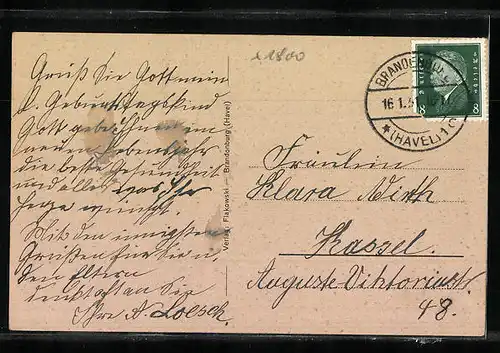 11800
Grüß Sie Gott mein
l. Geburtstagskind
Gott geb Ihnen im
neuen Lebensjahr
die beste Gesundheit
und alles was Ihr
Herze wünscht.
Mit den innigsten
Grüßen für Sie u.
den Eltern
Ihre A. Loesch.
Verlag Flakowski – Brandenburg (Havel)
BRANDENBURG
16.1.3
*(HAVEL)1
8 8
Fräulein
Klara Wirth
Kassel.
Auguste-Viktoriastr.
48.